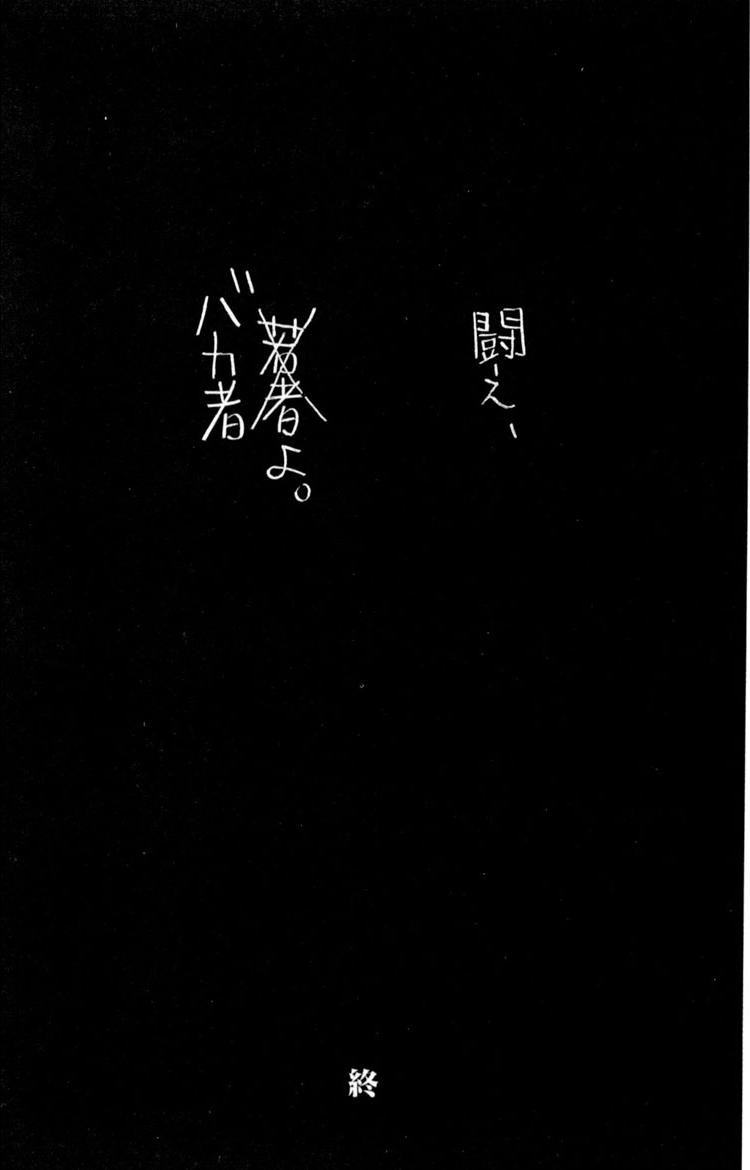 闘え、
若者よ。
バカ者
終